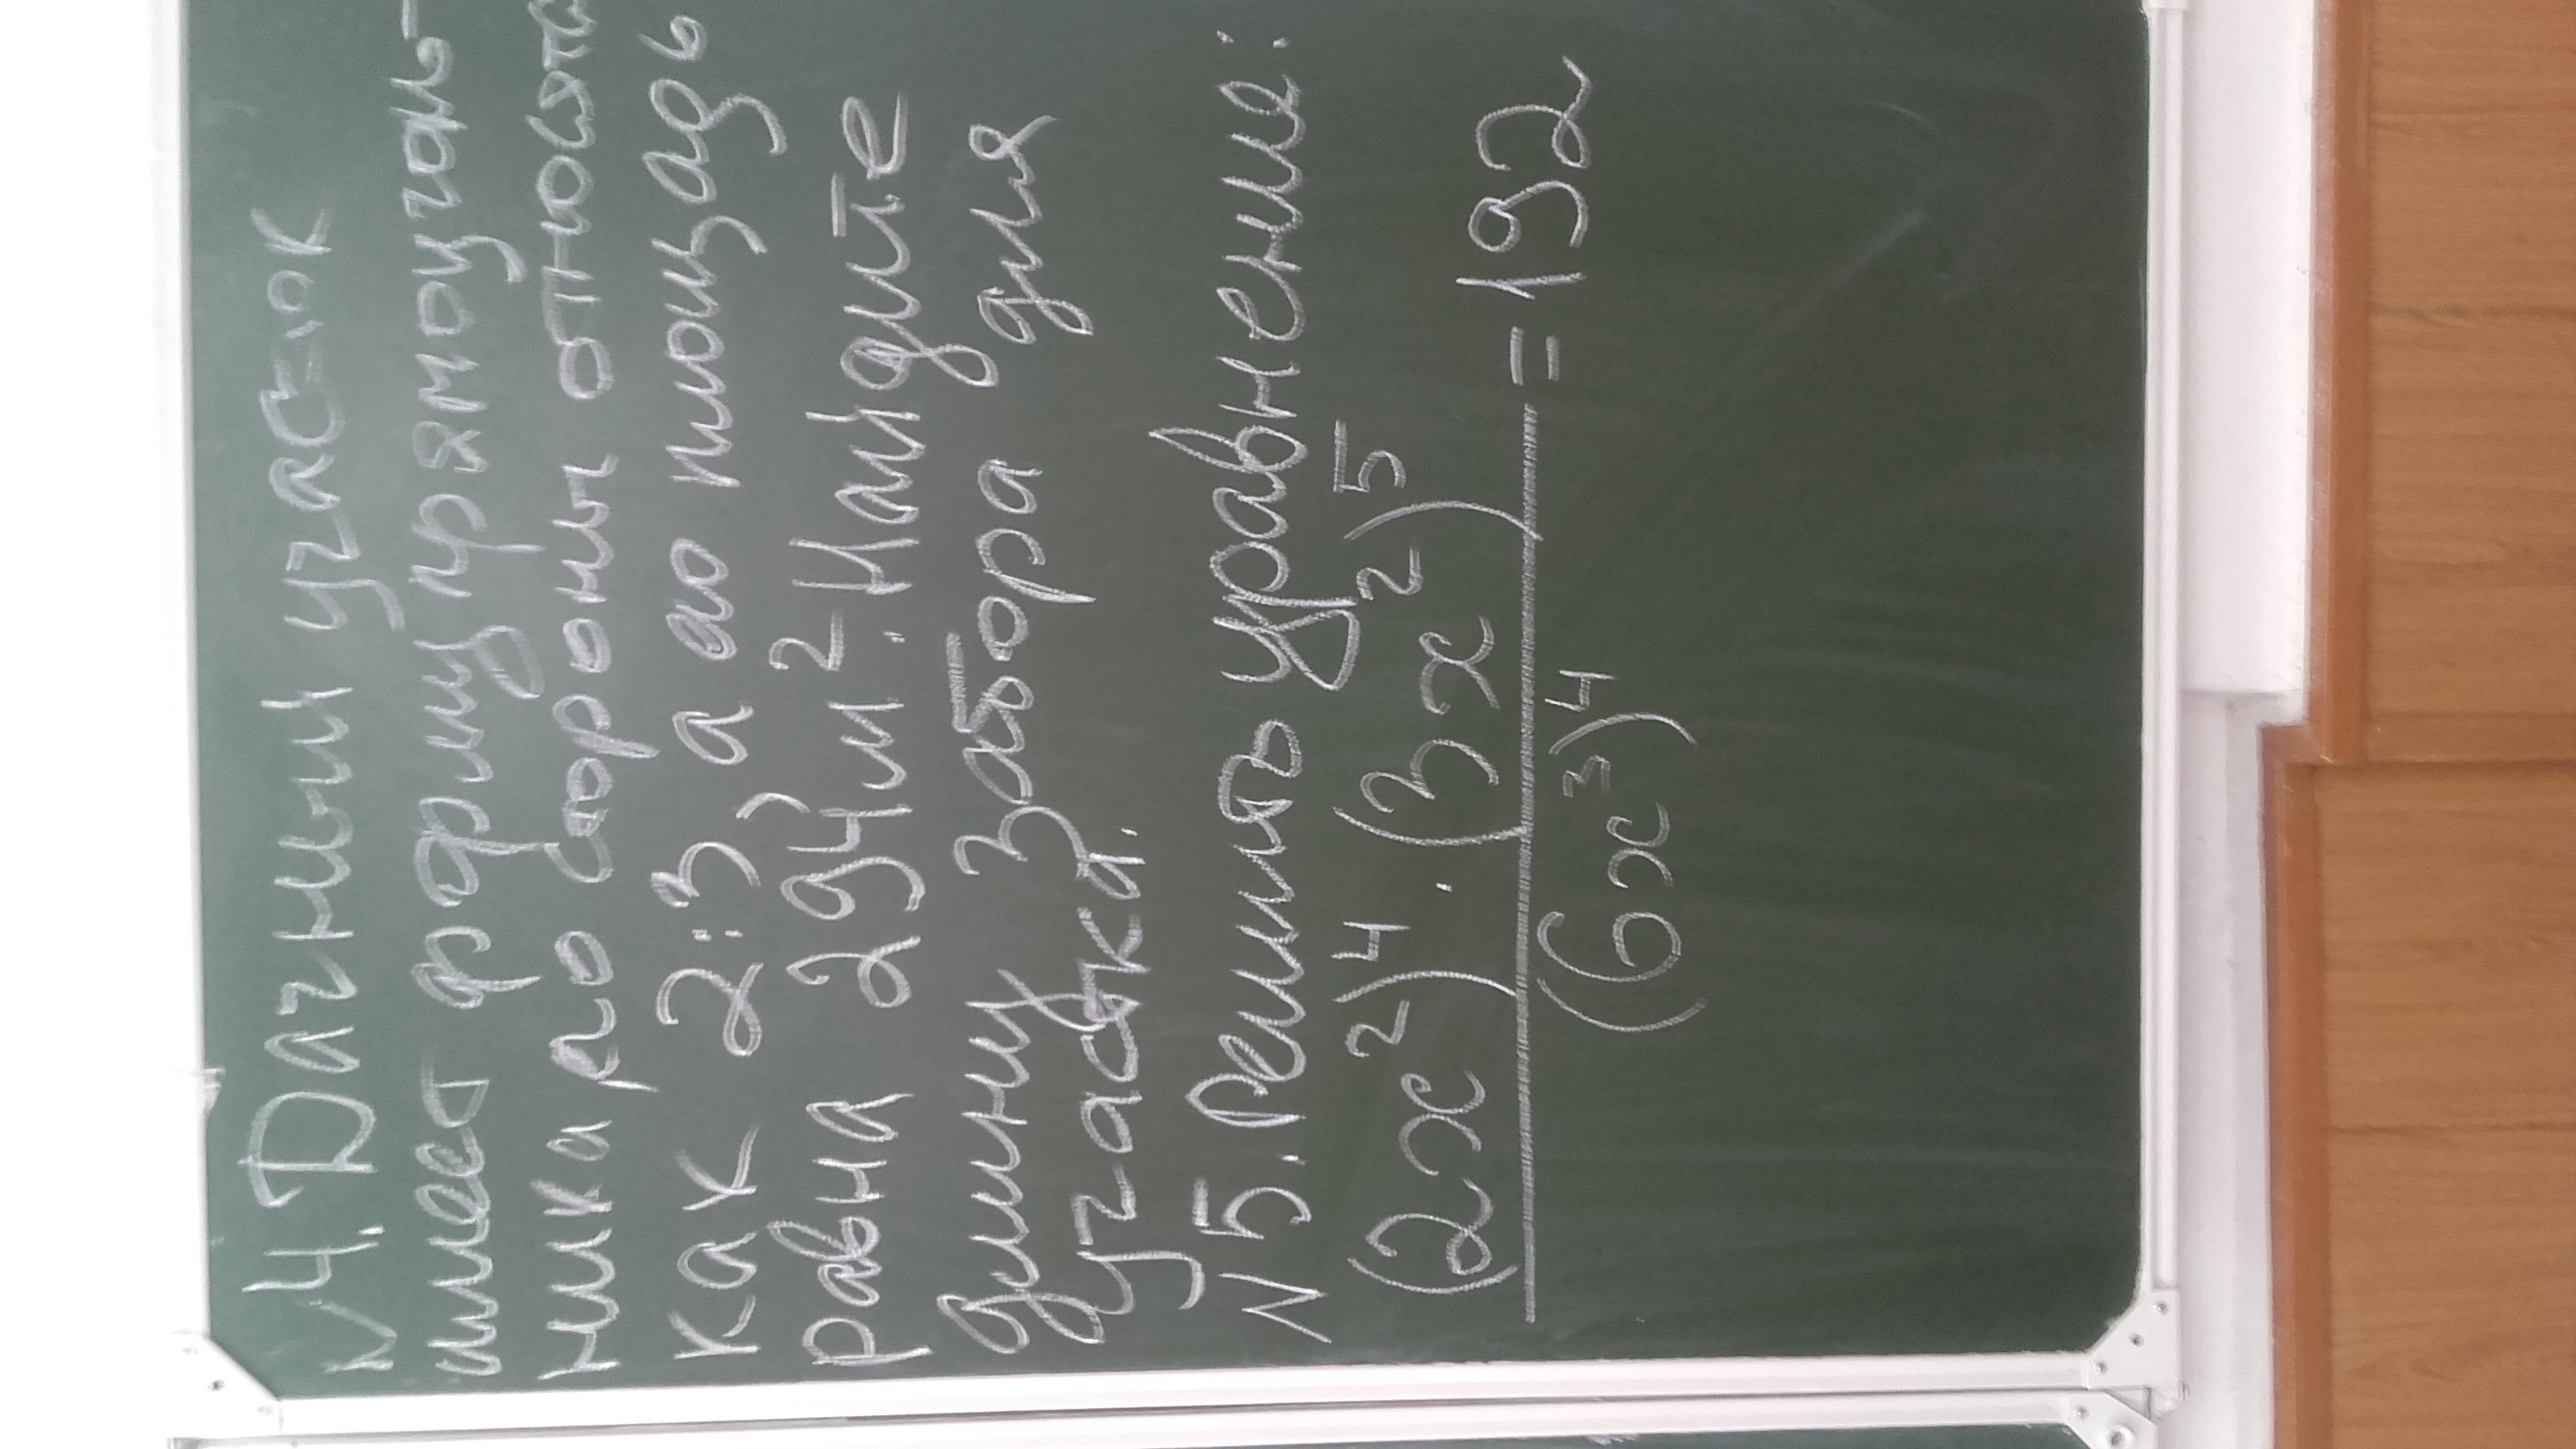 N4. Дачный участок
имеет форму прямоуголь-
ника, его стороны относятся
как 2:3, а его площадь
равна 294м². Найдите
длину забора для
участка.
N5. Решить уравнение:
(2x²)⁴ · (3x²)⁵
= 192
(6x³)⁴